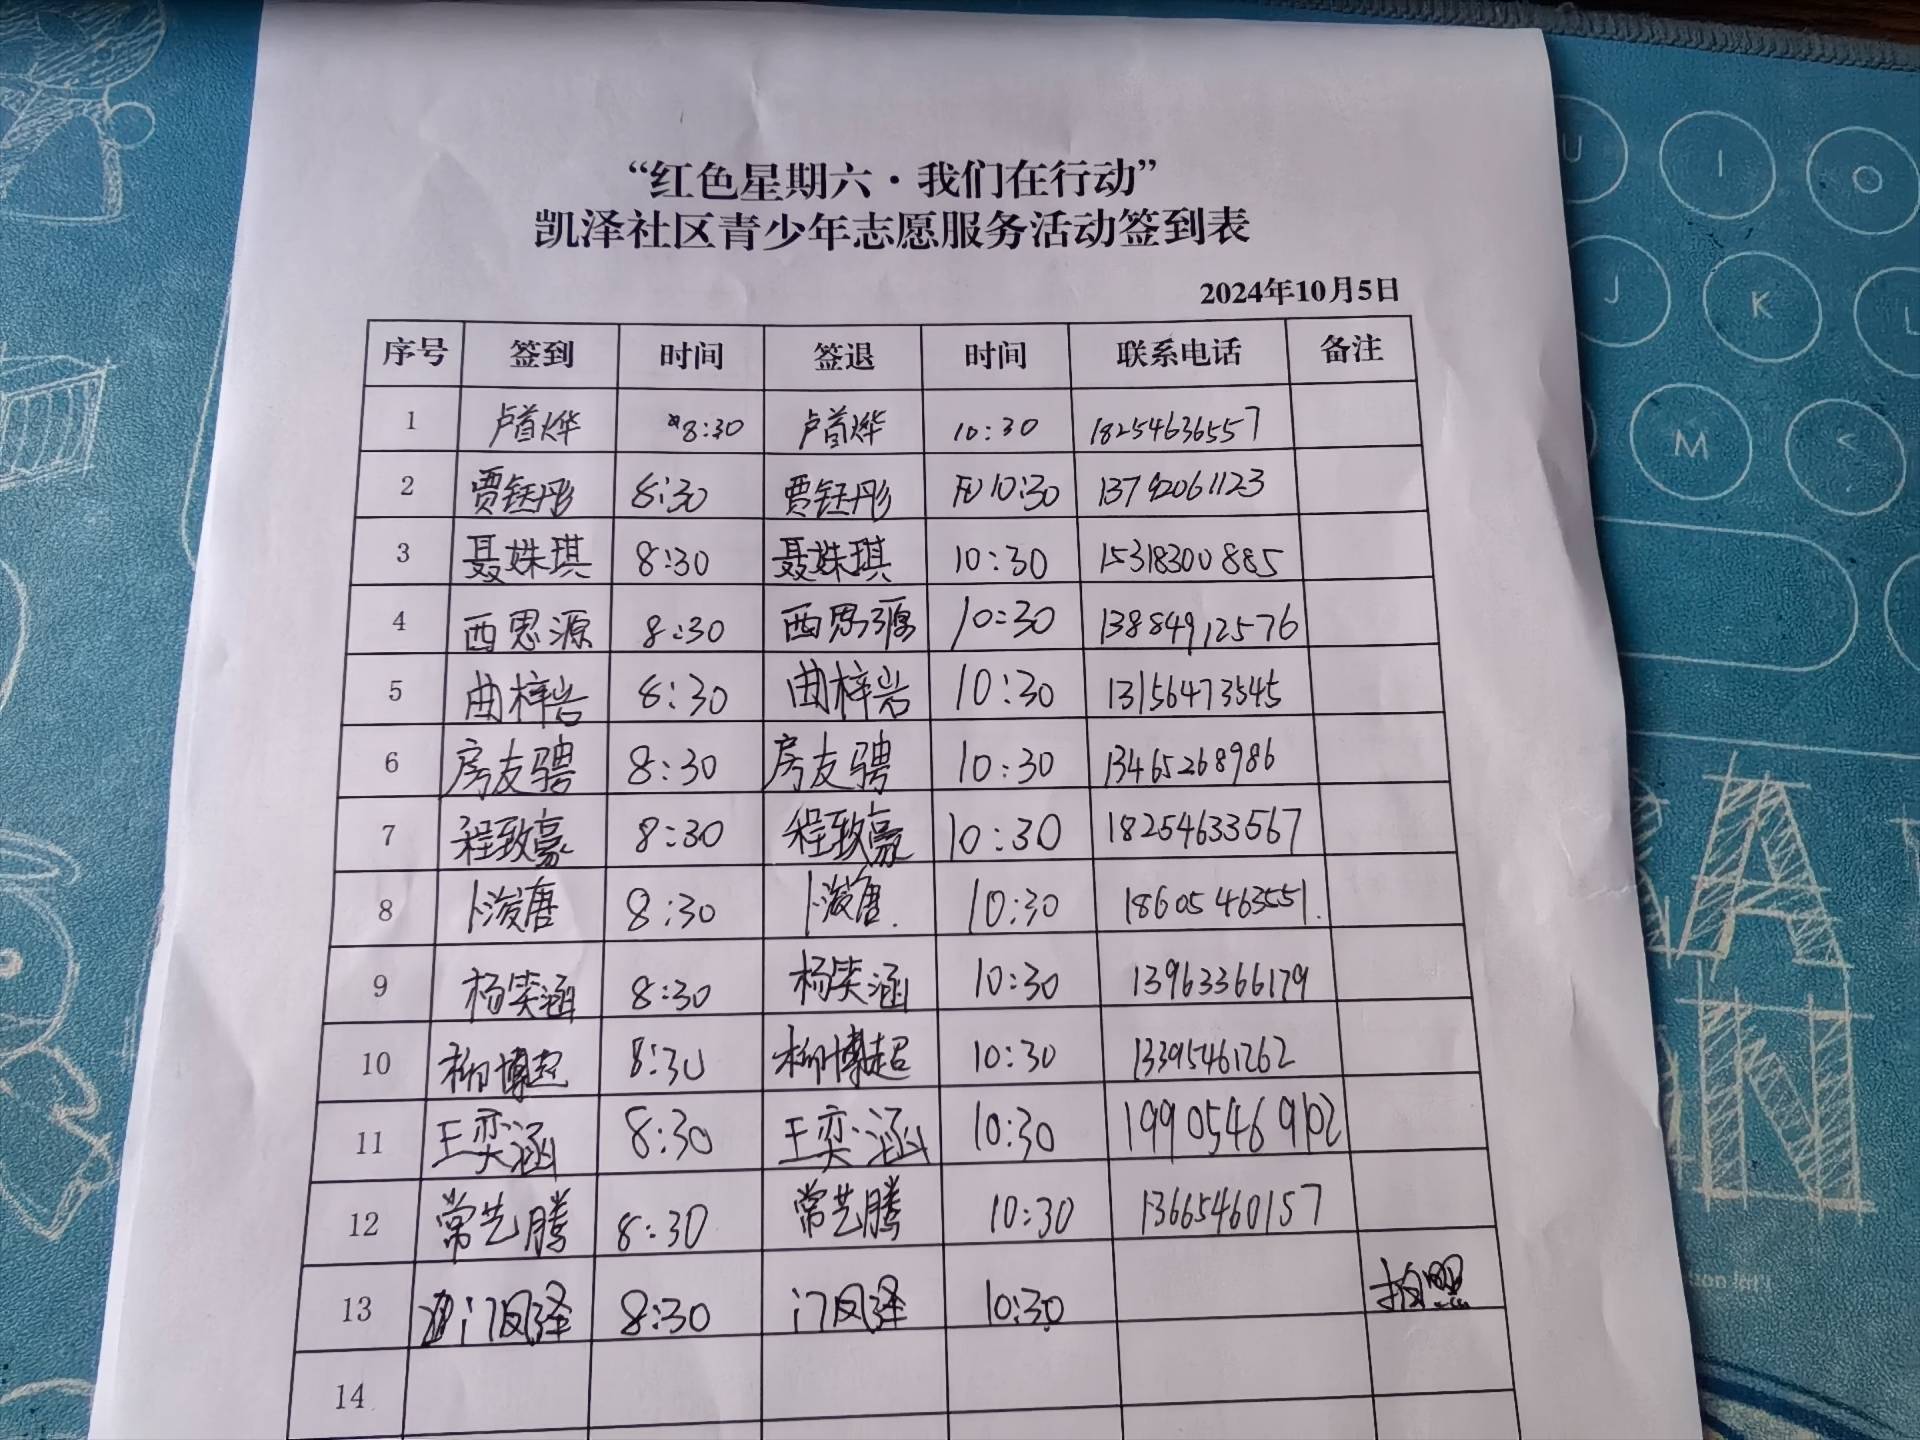 “红色星期六·我们在行动”
凯泽社区青少年志愿服务活动签到表
2024年10月5日
序号 签到 时间 签退 时间 联系电话 备注
1 卢首烨 8:30 卢首烨 10:30 18254636557
2 贾钰彤 8:30 贾钰彤 10:30 13792061123
3 聂姝琪 8:30 聂姝琪 10:30 15318300885
4 西思源 8:30 西思源 10:30 13884912576
5 曲梓岩 8:30 曲梓岩 10:30 13156473545
6 房友骋 8:30 房友骋 10:30 13465268986
7 程致豪 8:30 程致豪 10:30 18254633567
8 卜浚唐 8:30 卜浚唐 10:30 18605463551
9 杨笑涵 8:30 杨笑涵 10:30 13963366179
10 柳博超 8:30 柳博超 10:30 13395461262
11 王奕涵 8:30 王奕涵 10:30 19905469102
12 常艺腾 8:30 常艺腾 10:30 13665460157
13 门凤泽 8:30 门凤泽 10:30
14
U I O
J K L
M <